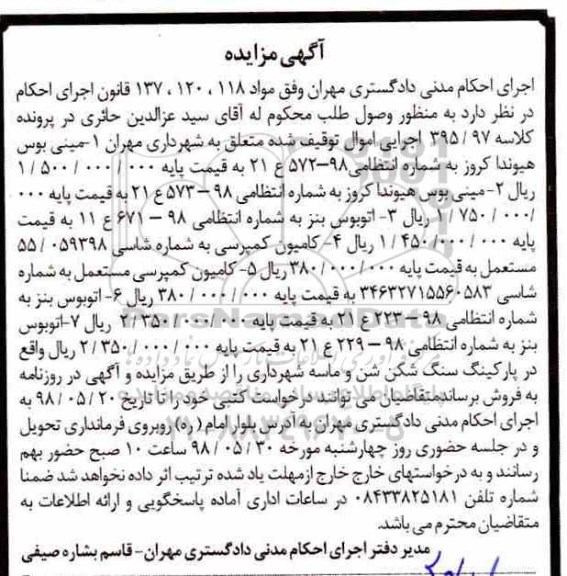 آگهی مزایده
اجرای احکام مدنی دادگستری مهران وفق مواد ۱۱۸ ، ۱۲۰ ، ۱۳۷ قانون اجرای احکام
در نظر دارد به منظور وصول طلب محکوم له آقای سید عزالدین حائری در پرونده
کلاسه ۹۷ / ۳۹۵ اجرایی اموال توقیف شده متعلق به شهرداری مهران ۱-مینی بوس
هیوندا کروز به شماره انتظامی۹۸–۵۷۲ ع ۲۱ به قیمت پایه ۰۰۰ / ۰۰۰ / ۵۰۰ / ۱
ریال ۲-مینی بوس هیوندا کروز به شماره انتظامی ۹۸ – ۵۷۳ ع ۲۱ به قیمت پایه ۰۰۰
/ ۰۰۰ / ۷۵۰ / ۱ ریال ۳- اتوبوس بنز به شماره انتظامی ۹۸ – ۶۷۱ ع ۱۱ به قیمت
پایه ۰۰۰ / ۰۰۰/ ۴۵۰ / ۱ ریال ۴- کامیون کمپرسی به شماره شاسی ۰۵۹۳۹۸ / ۵۵
مستعمل به قیمت پایه ۰۰۰ / ۰۰۰ /۳۸۰ ریال ۵- کامیون کمپرسی مستعمل به شماره
شاسی ۳۴۶۳۲۷۱۵۵۶۰۵۸۳ به قیمت پایه ۰۰۰ / ۰۰۰ / ۳۸۰ ریال ۶- اتوبوس بنز به
شماره انتظامی ۹۸ – ۲۲۳ ع ۲۱ به قیمت پایه ۰۰۰ / ۰۰۰ / ۳۵۰ / ۲ ریال ۷-اتوبوس
بنز به شماره انتظامی ۹۸ – ۲۲۹ ع ۲۱ به قیمت پایه ۰۰۰ / ۰۰۰ / ۳۵۰ / ۲ ریال واقع
در پارکینگ سنگ شکن شن و ماسه شهرداری را از طریق مزایده و آگهی در روزنامه
به فروش برساندمتقاضیان می توانند درخواست کتبی خود را تا تاریخ ۲۰ / ۰۵ / ۹۸ به
اجرای احکام مدنی دادگستری مهران به آدرس بلوار امام ( ره) روبروی فرمانداری تحویل
و در جلسه حضوری روز چهارشنبه مورخه ۳۰ / ۰۵ / ۹۸ ساعت ۱۰ صبح حضور بهم
رسانند و به درخواستهای خارج خارج ازمهلت یاد شده ترتیب اثر داده نخواهد شد ضمنا
شماره تلفن ۰۸۴۳۳۸۲۵۱۸۱ در ساعات اداری آماده پاسخگویی و ارائه اطلاعات به
متقاضیان محترم می باشد.
مدیر دفتر اجرای احکام مدنی دادگستری مهران– قاسم بشاره صیفی
ParsNamadData